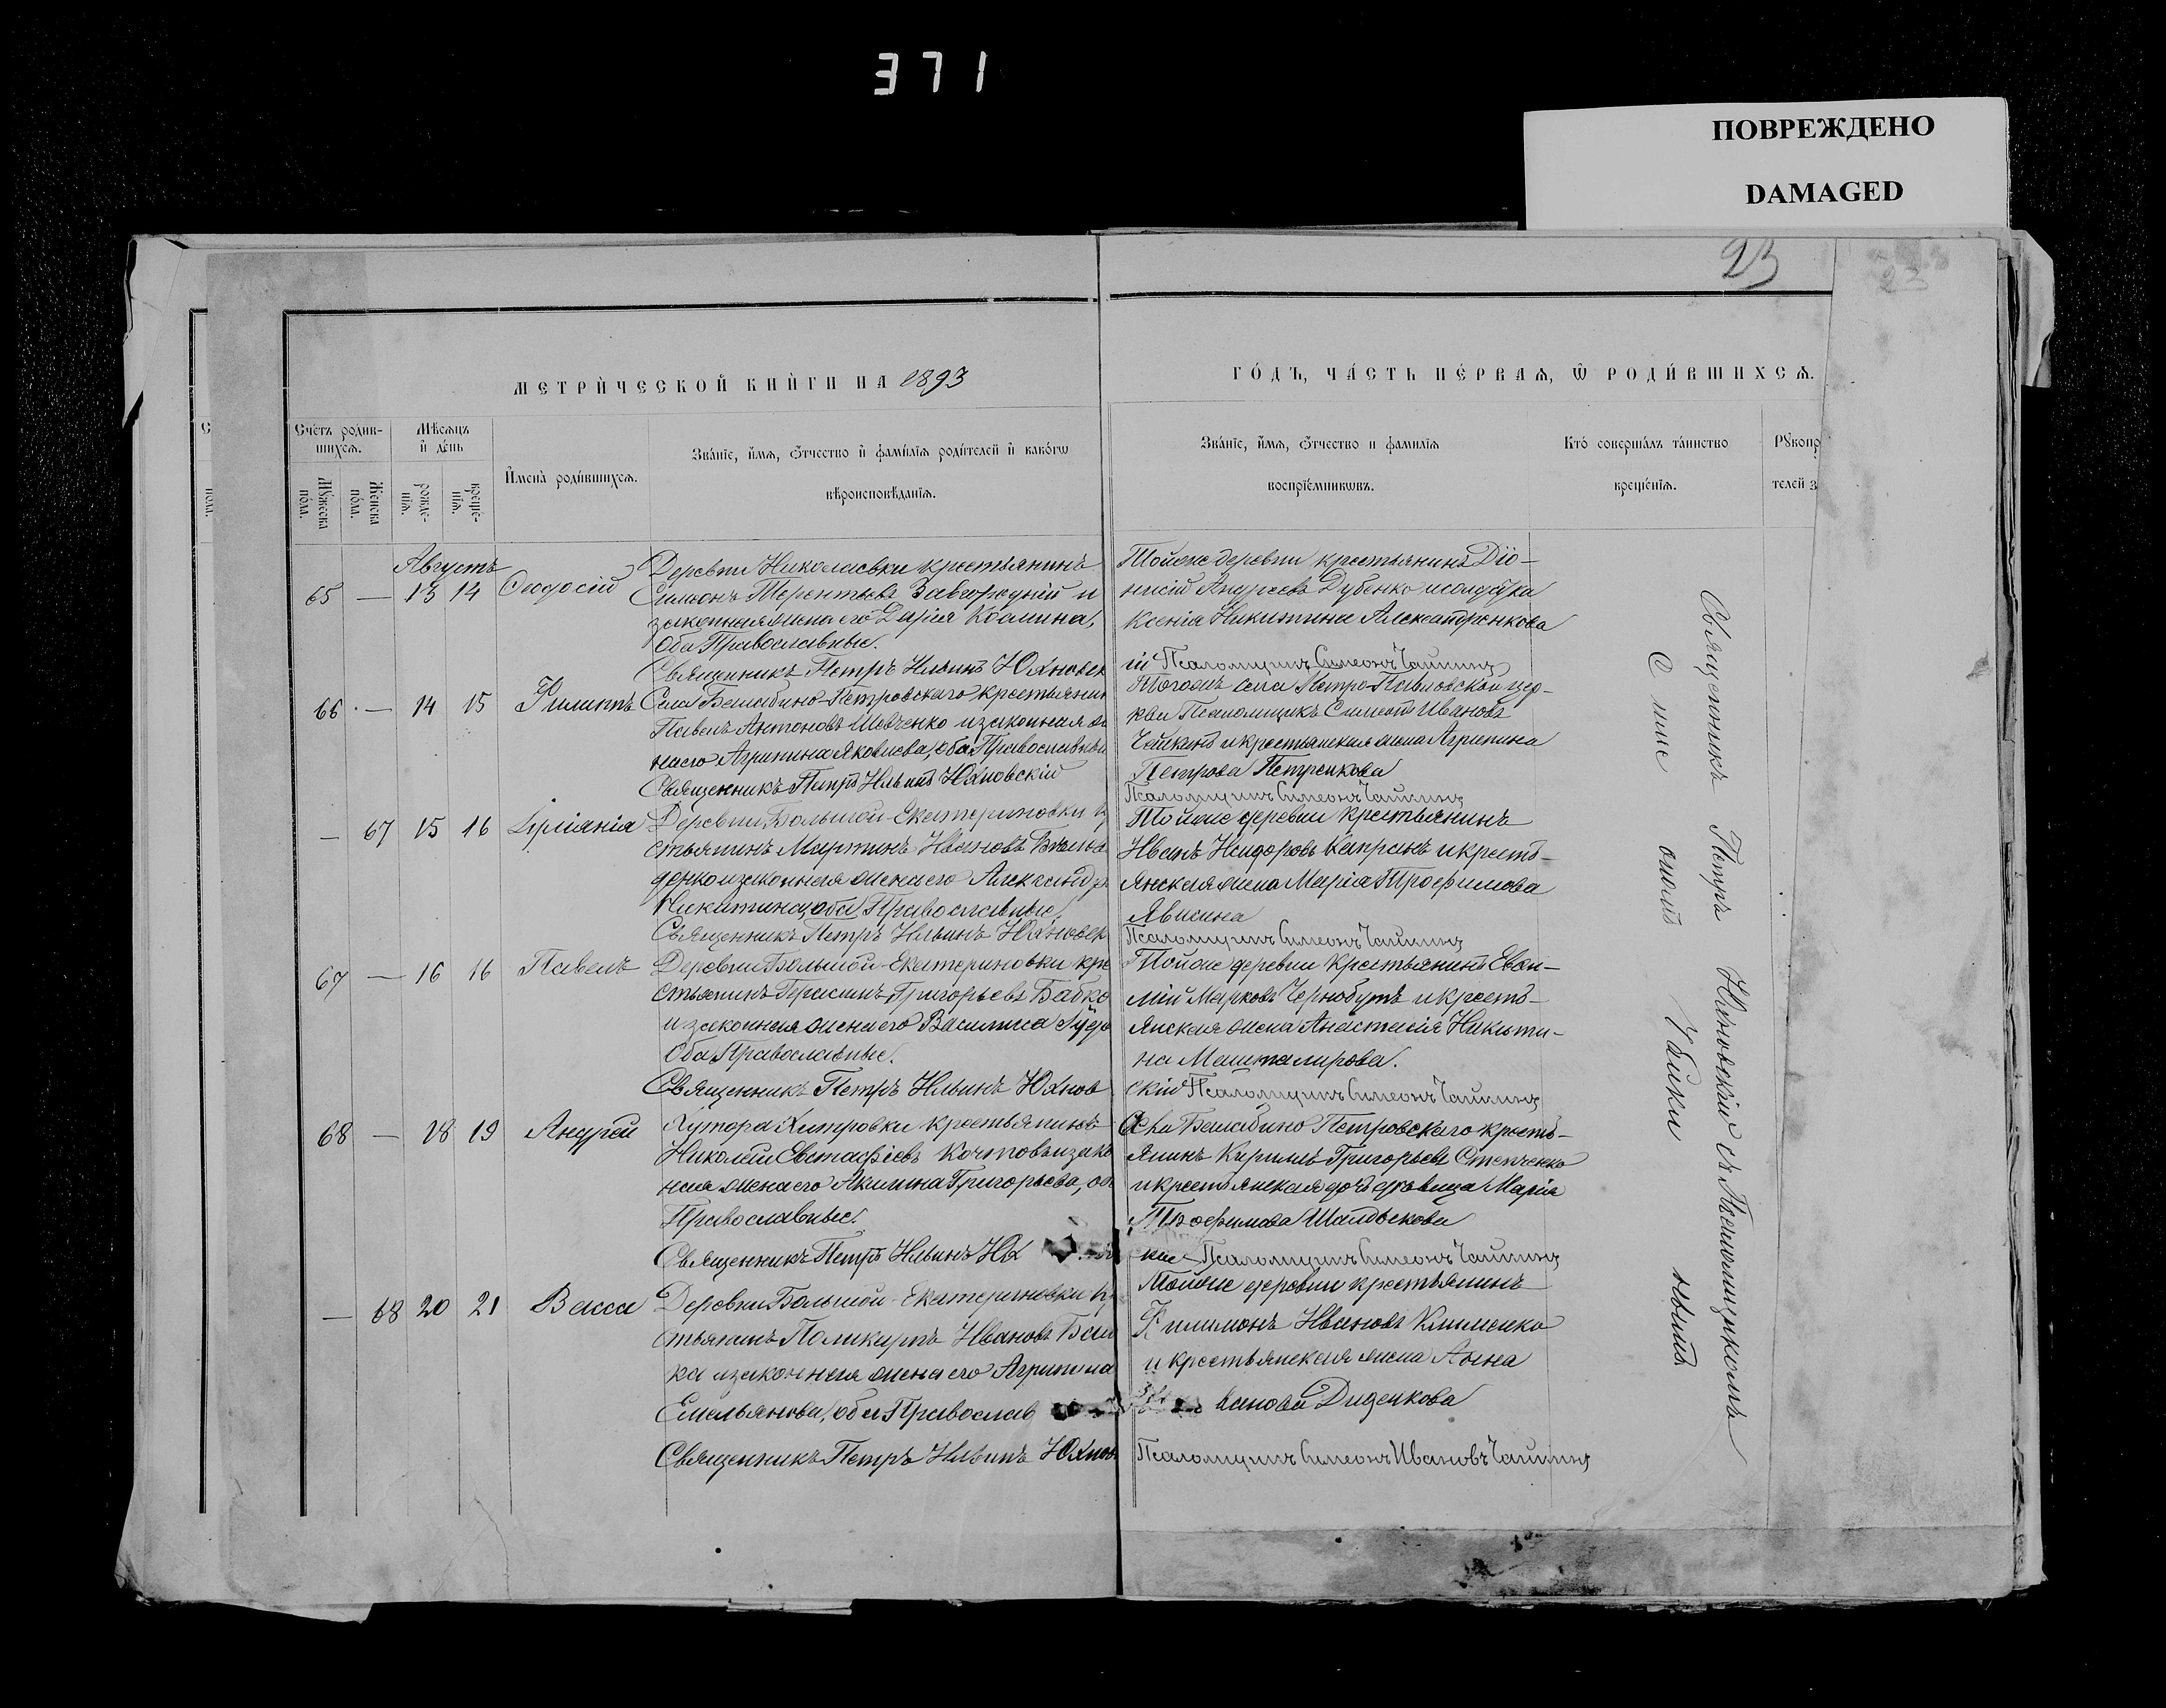 371
ПОВРЕЖДЕНО
DAMAGED
23
МЕТРИ́ЧЕСКОЙ КНИ́ГИ НА 1893
ГО́ДЪ, ЧА́СТЬ ПЕ́РВАѦ, Ѿ РОДИ́ВШИХСѦ.
Сче́тъ роди́в-
шихсѧ.
Мѣ́сѧцъ
и҆ де́нь
И҆мена̀ роди́вшихсѧ.
Зва́нїе, и҆́мѧ, ѻ҆́тчество и҆ фами́лїѧ роди́телей и҆ како́гѡ
вѣроисповѣ́данїѧ.
Мꙋ́жеска
по́ла.
Же́нска
по́ла.
рожде́-
нїѧ.
креще́-
нїѧ.
Зва́нїе, и҆́мѧ, ѻ҆́тчество и фами́лїѧ
воспрїе́мникѡвъ.
Кто́ соверша́лъ та́инство
креще́нїѧ.
Рꙋкопр
телей з
Августъ
65 — 13 14 Ѳеодосій
Деревни Николаевки крестьянинъ
Симеонъ Терентьевъ Завгородній и
законная жена его Дарія Козмина,
Оба Православные.
Священникъ Петръ Ильинъ Юхновск
Тойже деревни крестьянинъ Діо-
нисій Андреевъ Дубенко и солдатка
Ксенія Никитина Александренкова
ій Псаломщикъ Симеонъ Чайкинъ
66 — 14 15 Филиппъ
Села Белабино-Петровскаго крестьянин
Павелъ Антоновъ Шевченко и законная ж
на его Агрипина Яковлева, оба Православны
Священникъ Петръ Ильинъ Юхновскій
Тогожъ села Петро-Павловской цер-
кви Псаломщикъ Симеонъ Ивановъ
Чайкинъ и крестьянская жена Агрипина
Петрова Петренкова
Псаломщикъ Симеонъ Чайкинъ
— 67 15 16
Деревни Большой-Екатериновки к
стьянинъ Мартинъ Ивановъ
денко и законная жена его Александр
Никитина, оба Православные.
Священникъ Петръ Ильинъ Юхновск
Тойже деревни крестьянинъ
Иванъ Исидоровъ Капранъ и кресть-
янская жена Марія Трофимова
Псаломщикъ Симеонъ Чайкинъ
67 — 16 16 Павелъ
Деревни Большой-Екатериновки кре
стьянинъ Герасимъ Григорьевъ Бабко
и законная жена его Василиса
Оба Православные.
Священникъ Петръ Ильинъ Юхнов
Тойже деревни крестьянинъ Евѳи-
мій Марковъ Чернобугъ и кресть-
янская жена Анастасія Никити-
на Машталирова.
скій Псаломщикъ Симеонъ Чайкинъ
68 — 18 19 Андрей
Хутора Хитровки крестьянинъ
Николай Евстафіевъ и зако
ная жена его Акилина Григорьева, об
Православные.
Священникъ Петръ Ильинъ Юх
Села Белабино Петровскаго кресть-
янинъ Кирилъ Григорьевъ Степченко
и крестьянская дочь дѣвица Марія
Трофимова
Псаломщикъ Симеонъ Чайкинъ
— 68 20 21 Васса
Деревни Большой-Екатериновки кр
стьянинъ Поликарпъ Ивановъ
ка и законная жена его Агрипина
Емельянова, оба Православ
Священникъ Петръ Ильинъ Юхнов
Тойже деревни крестьянинъ
Филимонъ Ивановъ Клименко
и крестьянская жена Анна
ванова Диденкова
Псаломщикъ Симеонъ Ивановъ Чайкинъ
Священникъ Петръ Юхновскій съ Псаломщикомъ
Симе ономъ Чайки нымъ